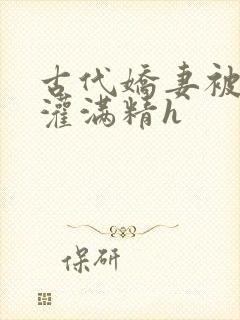 古代娇妻被
灌满精h
保研